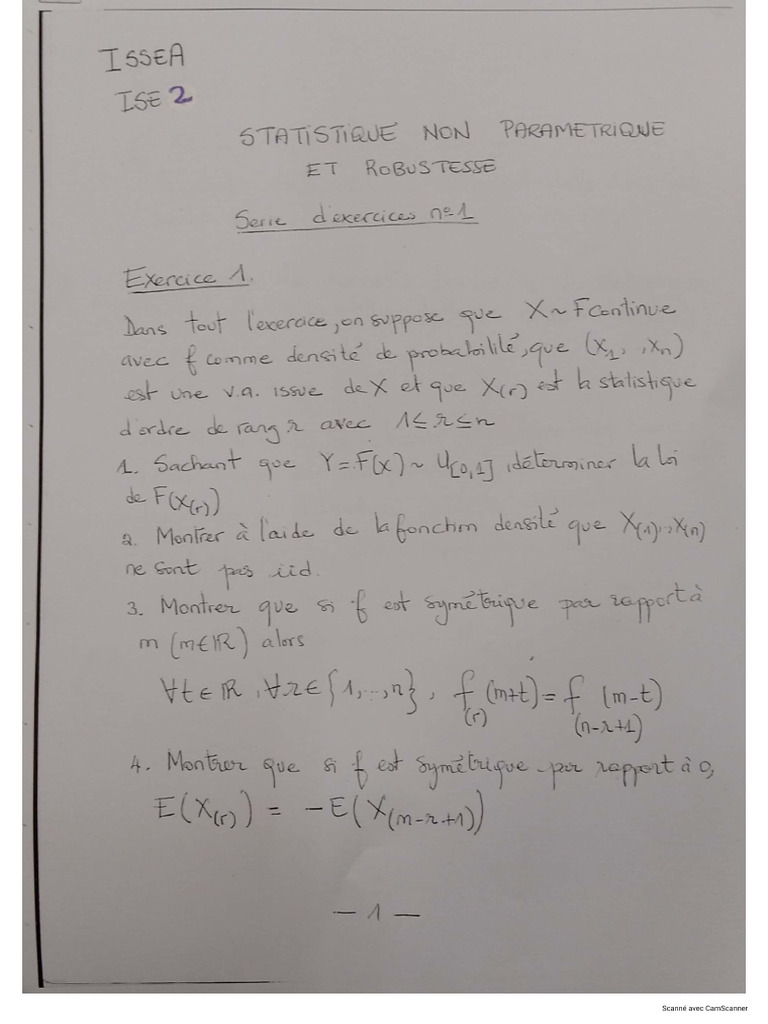 ISSEA
ISE 2
STATISTIQUE NON PARAMETRIQUE
ET ROBUSTESSE
Serie d'exercices n°1
Exercice 1.
Dans tout l'exercice, on suppose que X ~ F continue
avec f comme densité de probabilité, que (X₁, , Xₙ)
est une v.a. issue de X et que X₍ᵣ₎ est la statistique
d'ordre de rang r avec 1 ≤ r ≤ n
1. Sachant que Y = F(X) ~ U[0,1], déterminer la loi
de F(X₍ᵣ₎)
2. Montrer à l'aide de la fonction densité que X₍₁₎, .., X₍ₙ₎
ne sont pas iid.
3. Montrer que si f est symétrique par rapport à
m (m ∈ ℝ) alors
∀t ∈ ℝ, ∀r ∈ {1, .., n}, f₍ᵣ₎(m+t) = f₍ₙ₋ᵣ₊₁₎(m-t)
4. Montrer que si f est symétrique par rapport à 0,
E(X₍ᵣ₎) = -E(X₍ₙ₋ᵣ₊₁₎)
— 1 —
Scanné avec CamScanner